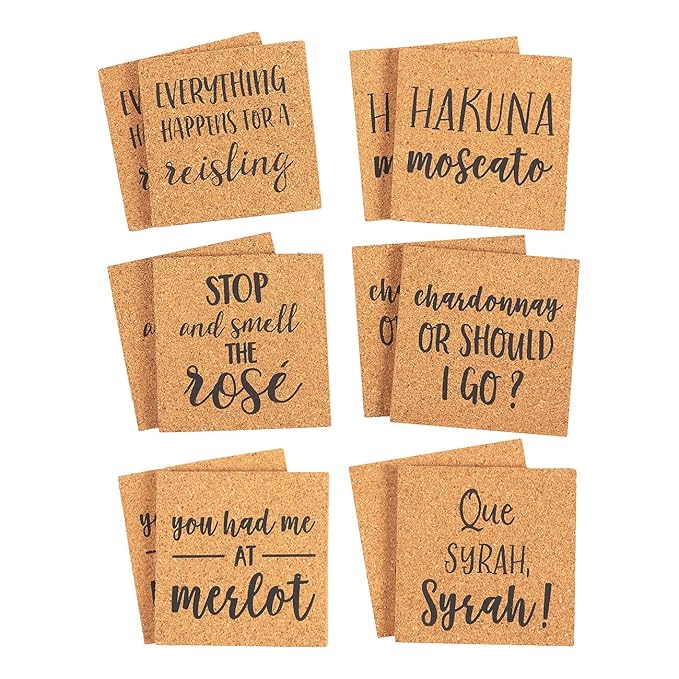 EVERYTHING
HAPPENS FOR A
reisling
HAKUNA
moscato
STOP
and smell
THE
rosé
chardonnay
OR SHOULD
I GO?
you had me
AT
merlot
Que
SYRAH,
Syrah!